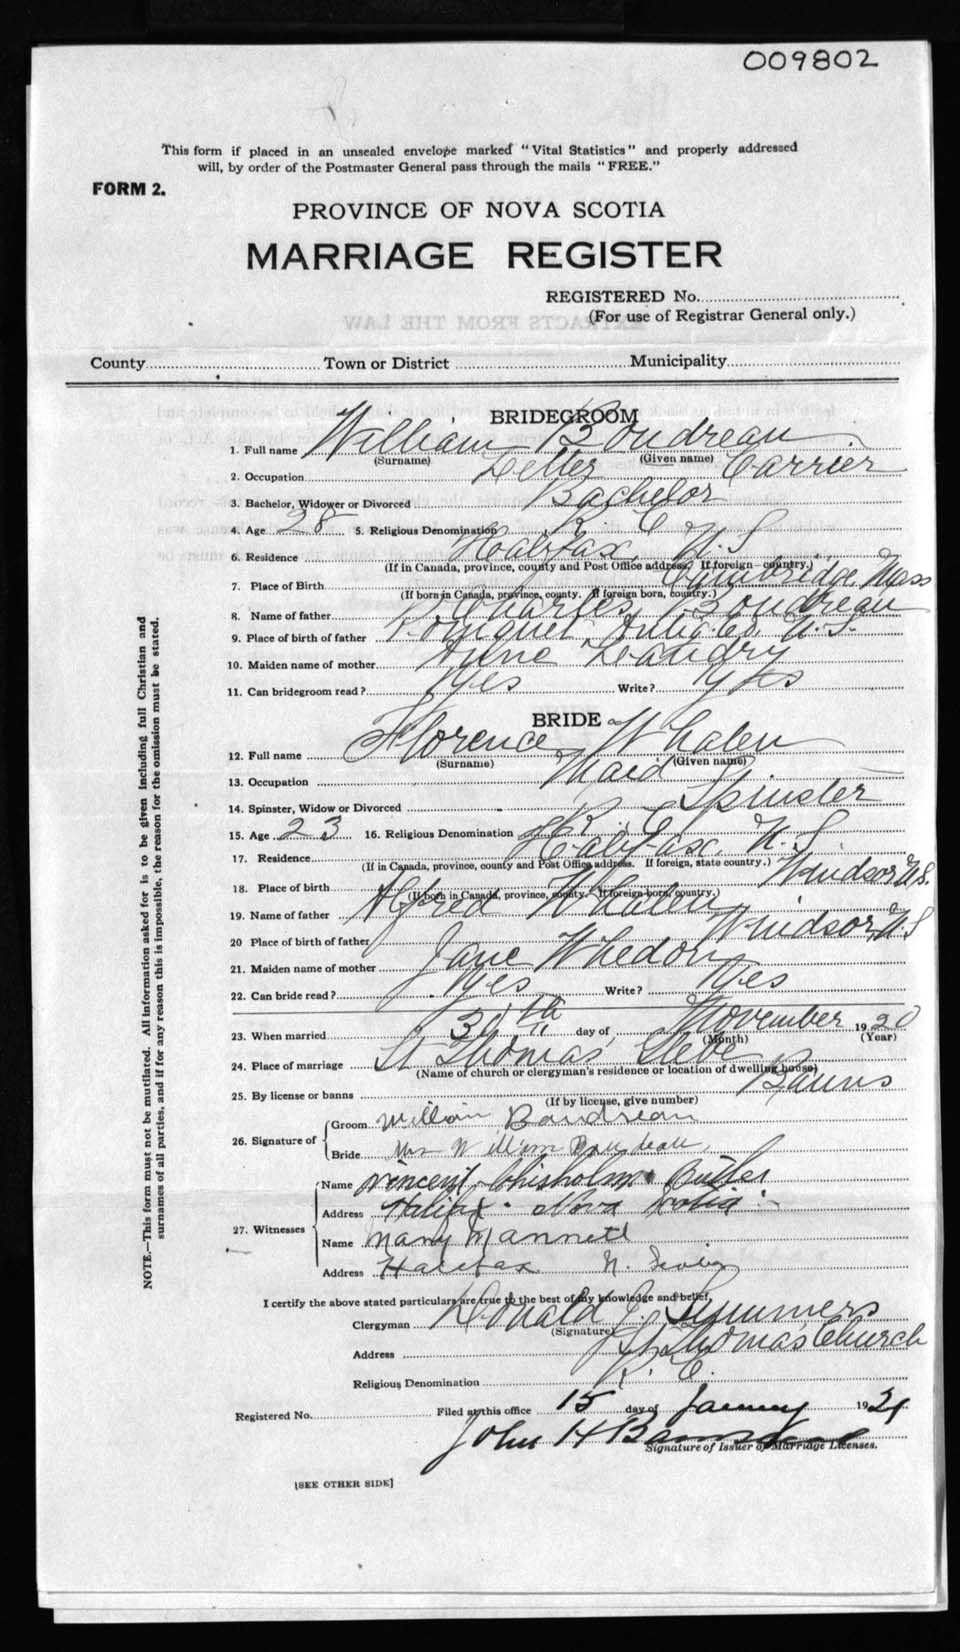 009802
This form if placed in an unsealed envelope marked "Vital Statistics" and properly addressed
will, by order of the Postmaster General pass through the mails "FREE."
FORM 2.
PROVINCE OF NOVA SCOTIA
MARRIAGE REGISTER
REGISTERED No.
(For use of Registrar General only.)
EXTRACTS FROM THE LAW
County Town or District Municipality
BRIDEGROOM
1. Full name William Boudreau
(Surname) (Given name)
2. Occupation Letter Carrier
3. Bachelor, Widower or Divorced Bachelor
4. Age 28 5. Religious Denomination R. C.
6. Residence Halifax, N.S
(If in Canada, province, county and Post Office address. If foreign country.)
7. Place of Birth Cambridge Mass
(If born in Canada, province, county. If foreign born, country.)
8. Name of father Charles Boudreau
9. Place of birth of father Pomquet, Antig. Co. N.S.
10. Maiden name of mother Anne Landry
11. Can bridegroom read? Yes Write? Yes
BRIDE
12. Full name Florence Whalen
(Surname) (Given name)
13. Occupation Maid
14. Spinster, Widow or Divorced Spinster
15. Age 23 16. Religious Denomination R. C.
17. Residence Halifax, N.S.
(If in Canada, province, county and Post Office address. If foreign, state country.)
18. Place of birth Windsor N.S.
(If born in Canada, province, county.—If foreign born, country.)
19. Name of father Alfred Whalen
20 Place of birth of father Windsor, N.S
21. Maiden name of mother Jane Whedon
22. Can bride read? Yes Write? Yes
23. When married 30th day of November 1920
(Month) (Year)
24. Place of marriage St Thomas' Glebe
(Name of church or clergyman's residence or location of dwelling house)
25. By license or banns Banns
(If by license, give number)
26. Signature of
Groom William Boudreau
Bride Mrs William Boudreau
27. Witnesses
Name Vincent Chisholm Butler
Address Halifax Nova Scotia
Name Mary Mannett
Address Halifax N. Scotia
I certify the above stated particulars are true to the best of my knowledge and belief,
Clergyman Donald J. Summers
(Signature)
Address St. Thomas' Church
Religious Denomination R. C.
Registered No. Filed at this office 15 day of January 1921
John H Barnstead
Signature of Issuer of Marriage Licenses.
[SEE OTHER SIDE]
NOTE.—This form must not be mutilated. All information asked for is to be given including full Christian and
surnames of all parties, and if for any reason this is impossible, the reason for the omission must be stated.